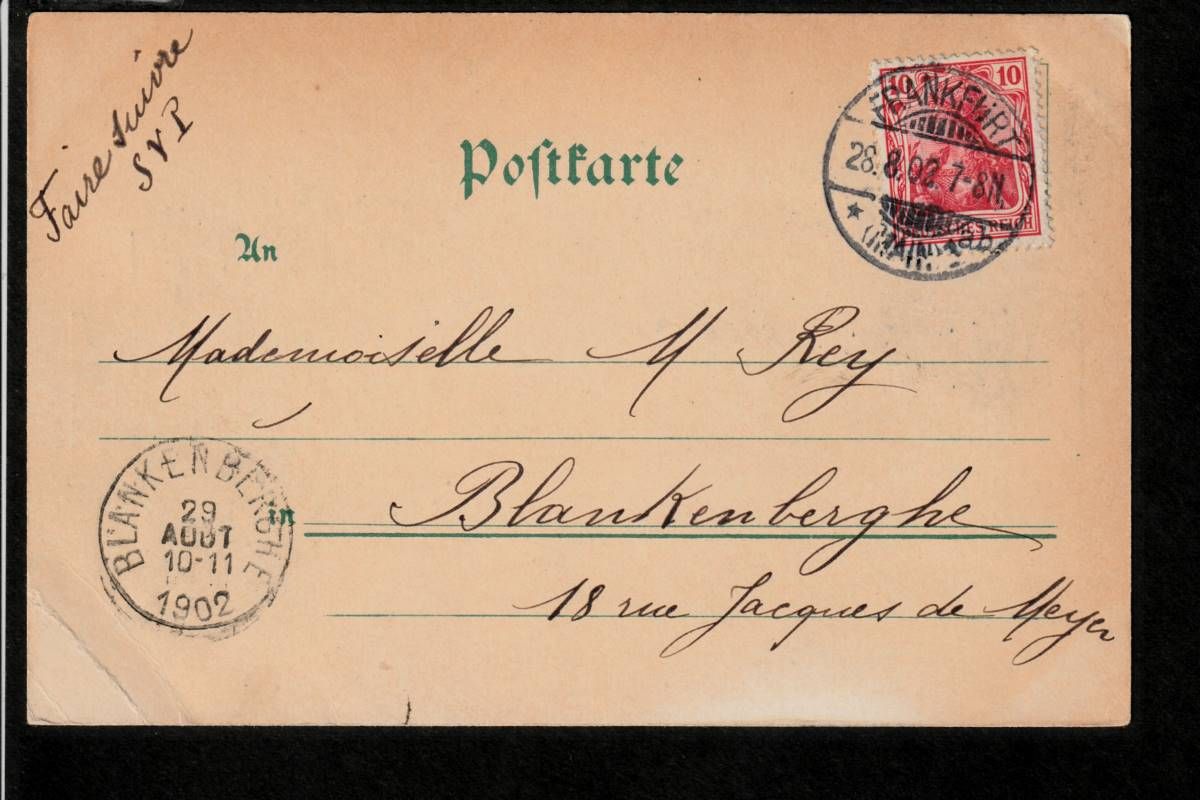 Faire suivre
S V P
Postkarte
10 10
FRANKFURT
28.8.02.7-8N.
(MAIN) 1
REICH
An
Mademoiselle M Rey
BLANKENBERGHE
29
AOUT
10-11
1902
in
Blankenberghe
18 rue Jacques de Meyer